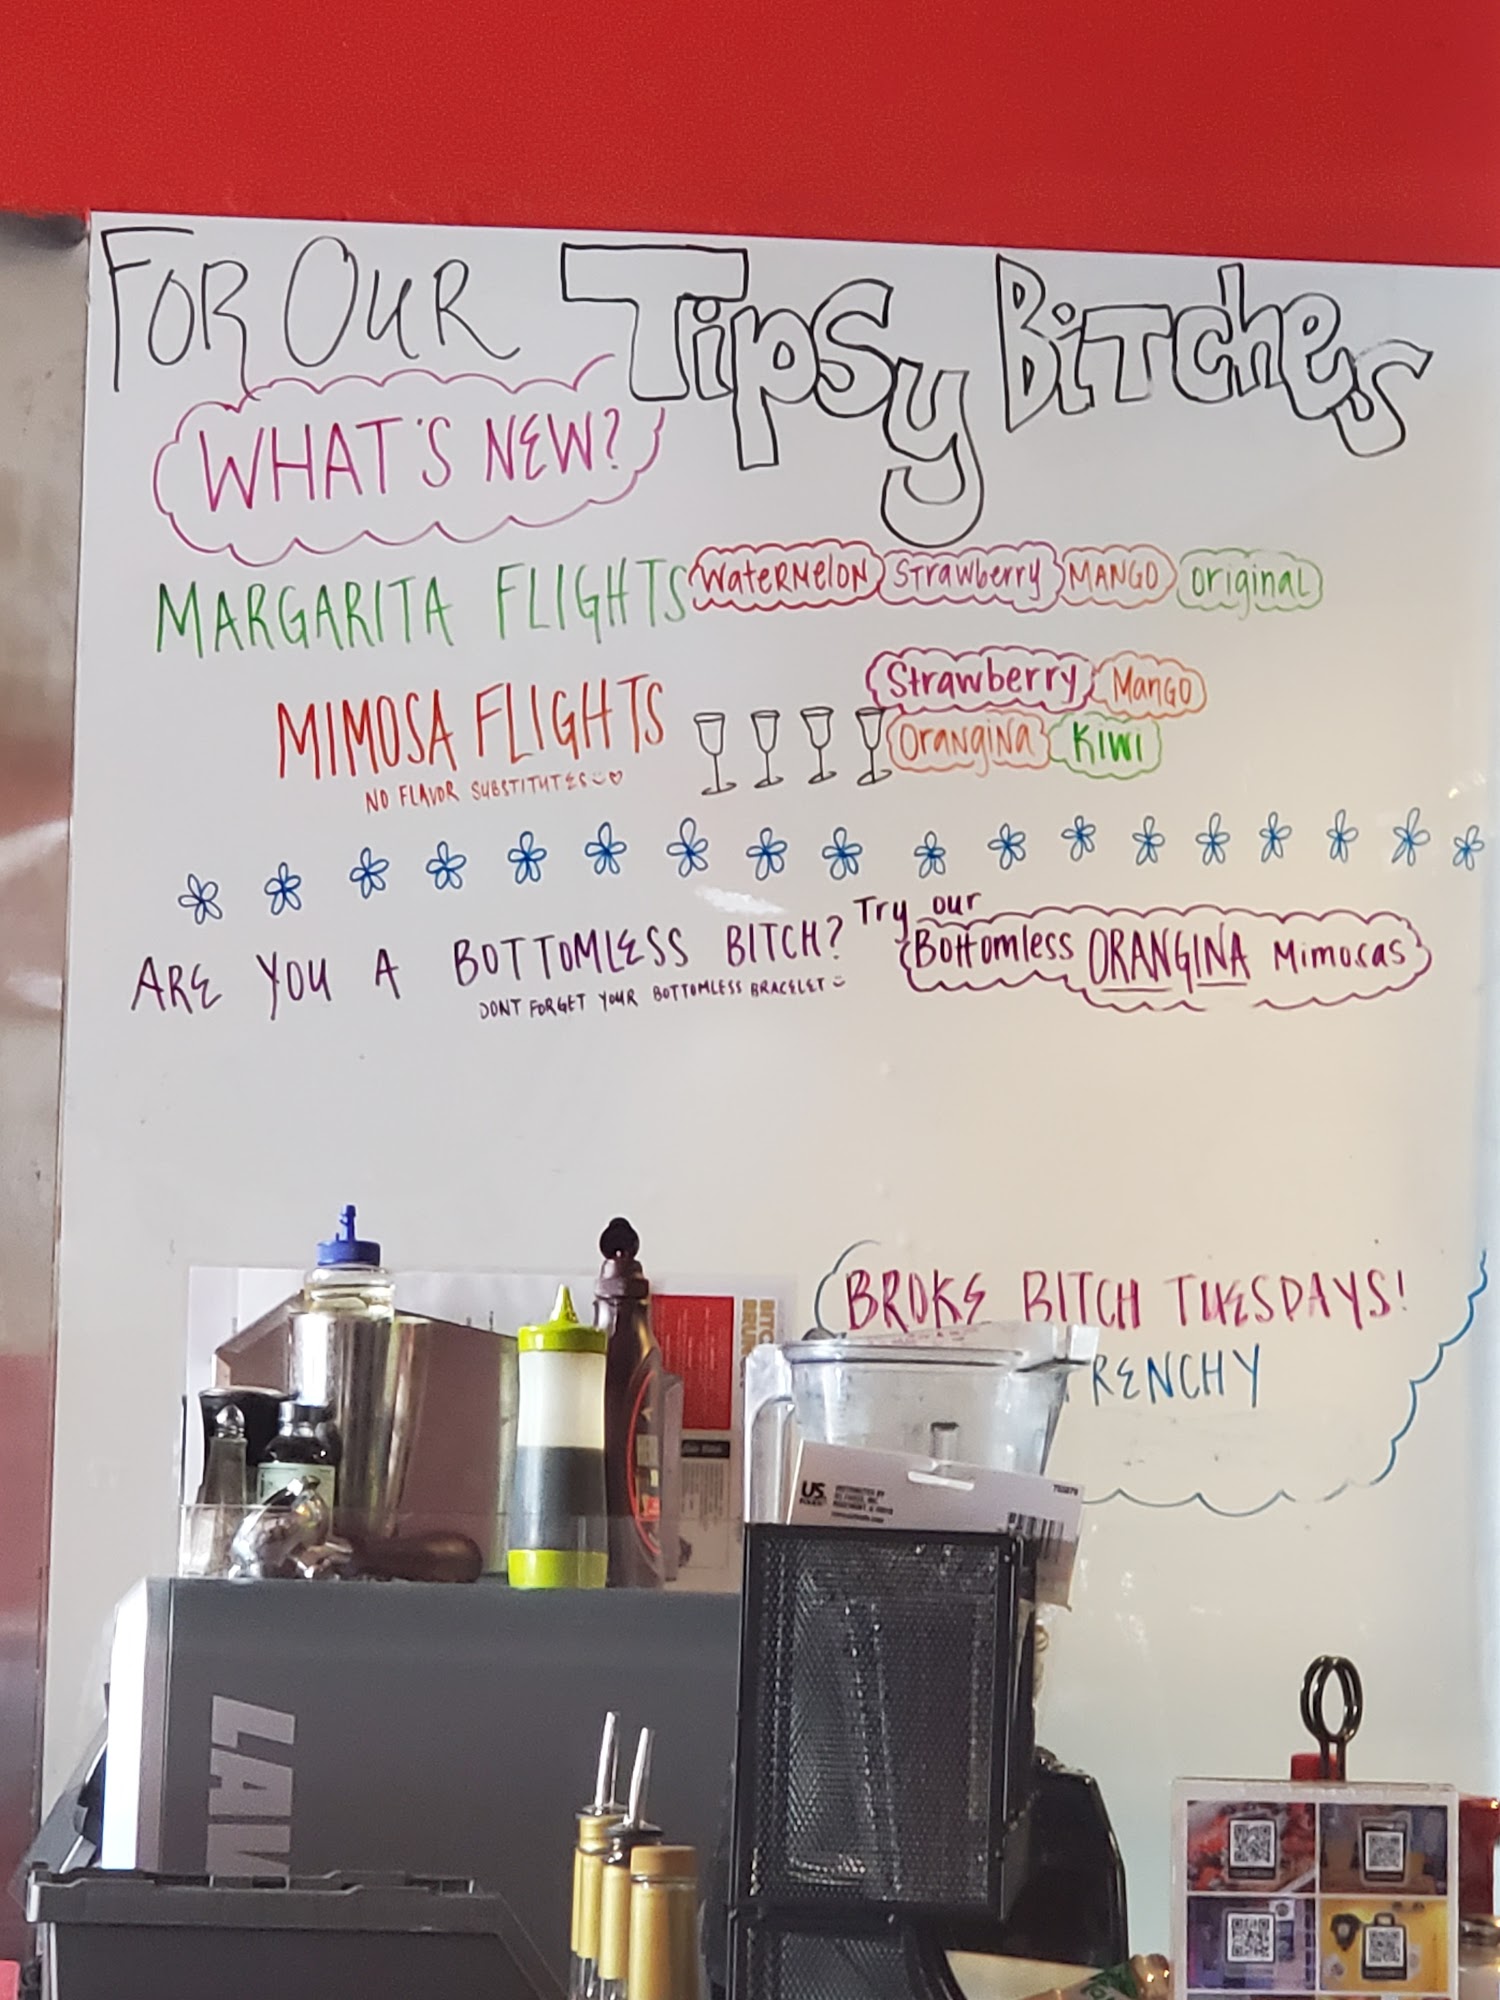 FOR OUR Tipsy Bitches
WHAT'S NEW?
MARGARITA FLIGHTS Watermelon Strawberry MANGO original
MIMOSA FLIGHTS Strawberry Mango
Orangina Kiwi
NO FLAVOR SUBSTITUTES
ARE YOU A BOTTOMLESS BITCH? Try our Bottomless ORANGINA Mimosas
DONT FORGET YOUR BOTTOMLESS BRACELET
BROKE BITCH TUESDAYS!
RENCHY
US